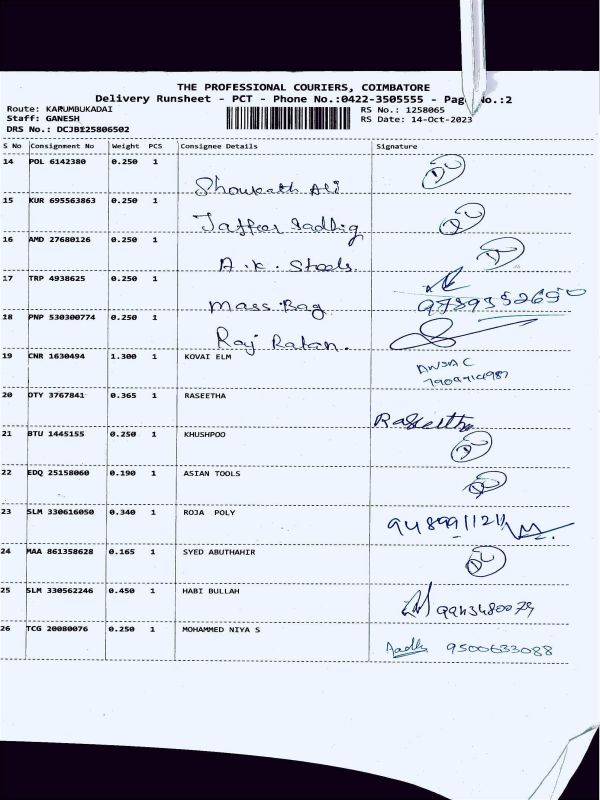 THE PROFESSIONAL COURIERS, COIMBATORE
Delivery Runsheet - PCT - Phone No.:0422-3505555 - Page No.:2
Route: KARUMBUKADAI RS No.: 1258065
Staff: GANESH RS Date: 14-Oct-2023
DRS No.: DCJB125806502
S No Consignment No Weight PCS Consignee Details Signature
14 POL 6142380 0.250 1 Showkath Ali
15 KUR 695563863 0.250 1 Jaffear Sadhig
16 AMD 27680126 0.250 1 A.K. Steels
17 TRP 4938625 0.250 1 Mass Bag
18 PNP 530300774 0.250 1 Raj Ratan.
19 CNR 1630494 1.300 1 KOVAI ELM
20 OTY 3767841 0.365 1 RASEETHA Raseetha
21 BTU 1445155 0.250 1 KHUSHPOO
22 EDQ 25158060 0.190 1 ASIAN TOOLS
23 SLM 330616050 0.340 1 ROJA POLY
24 MAA 861358628 0.165 1 SYED ABUTHAHIR
25 SLM 330562246 0.450 1 HABI BULLAH 9943480079
26 TCG 20080076 0.250 1 MOHAMMED NIYA S 9500633088